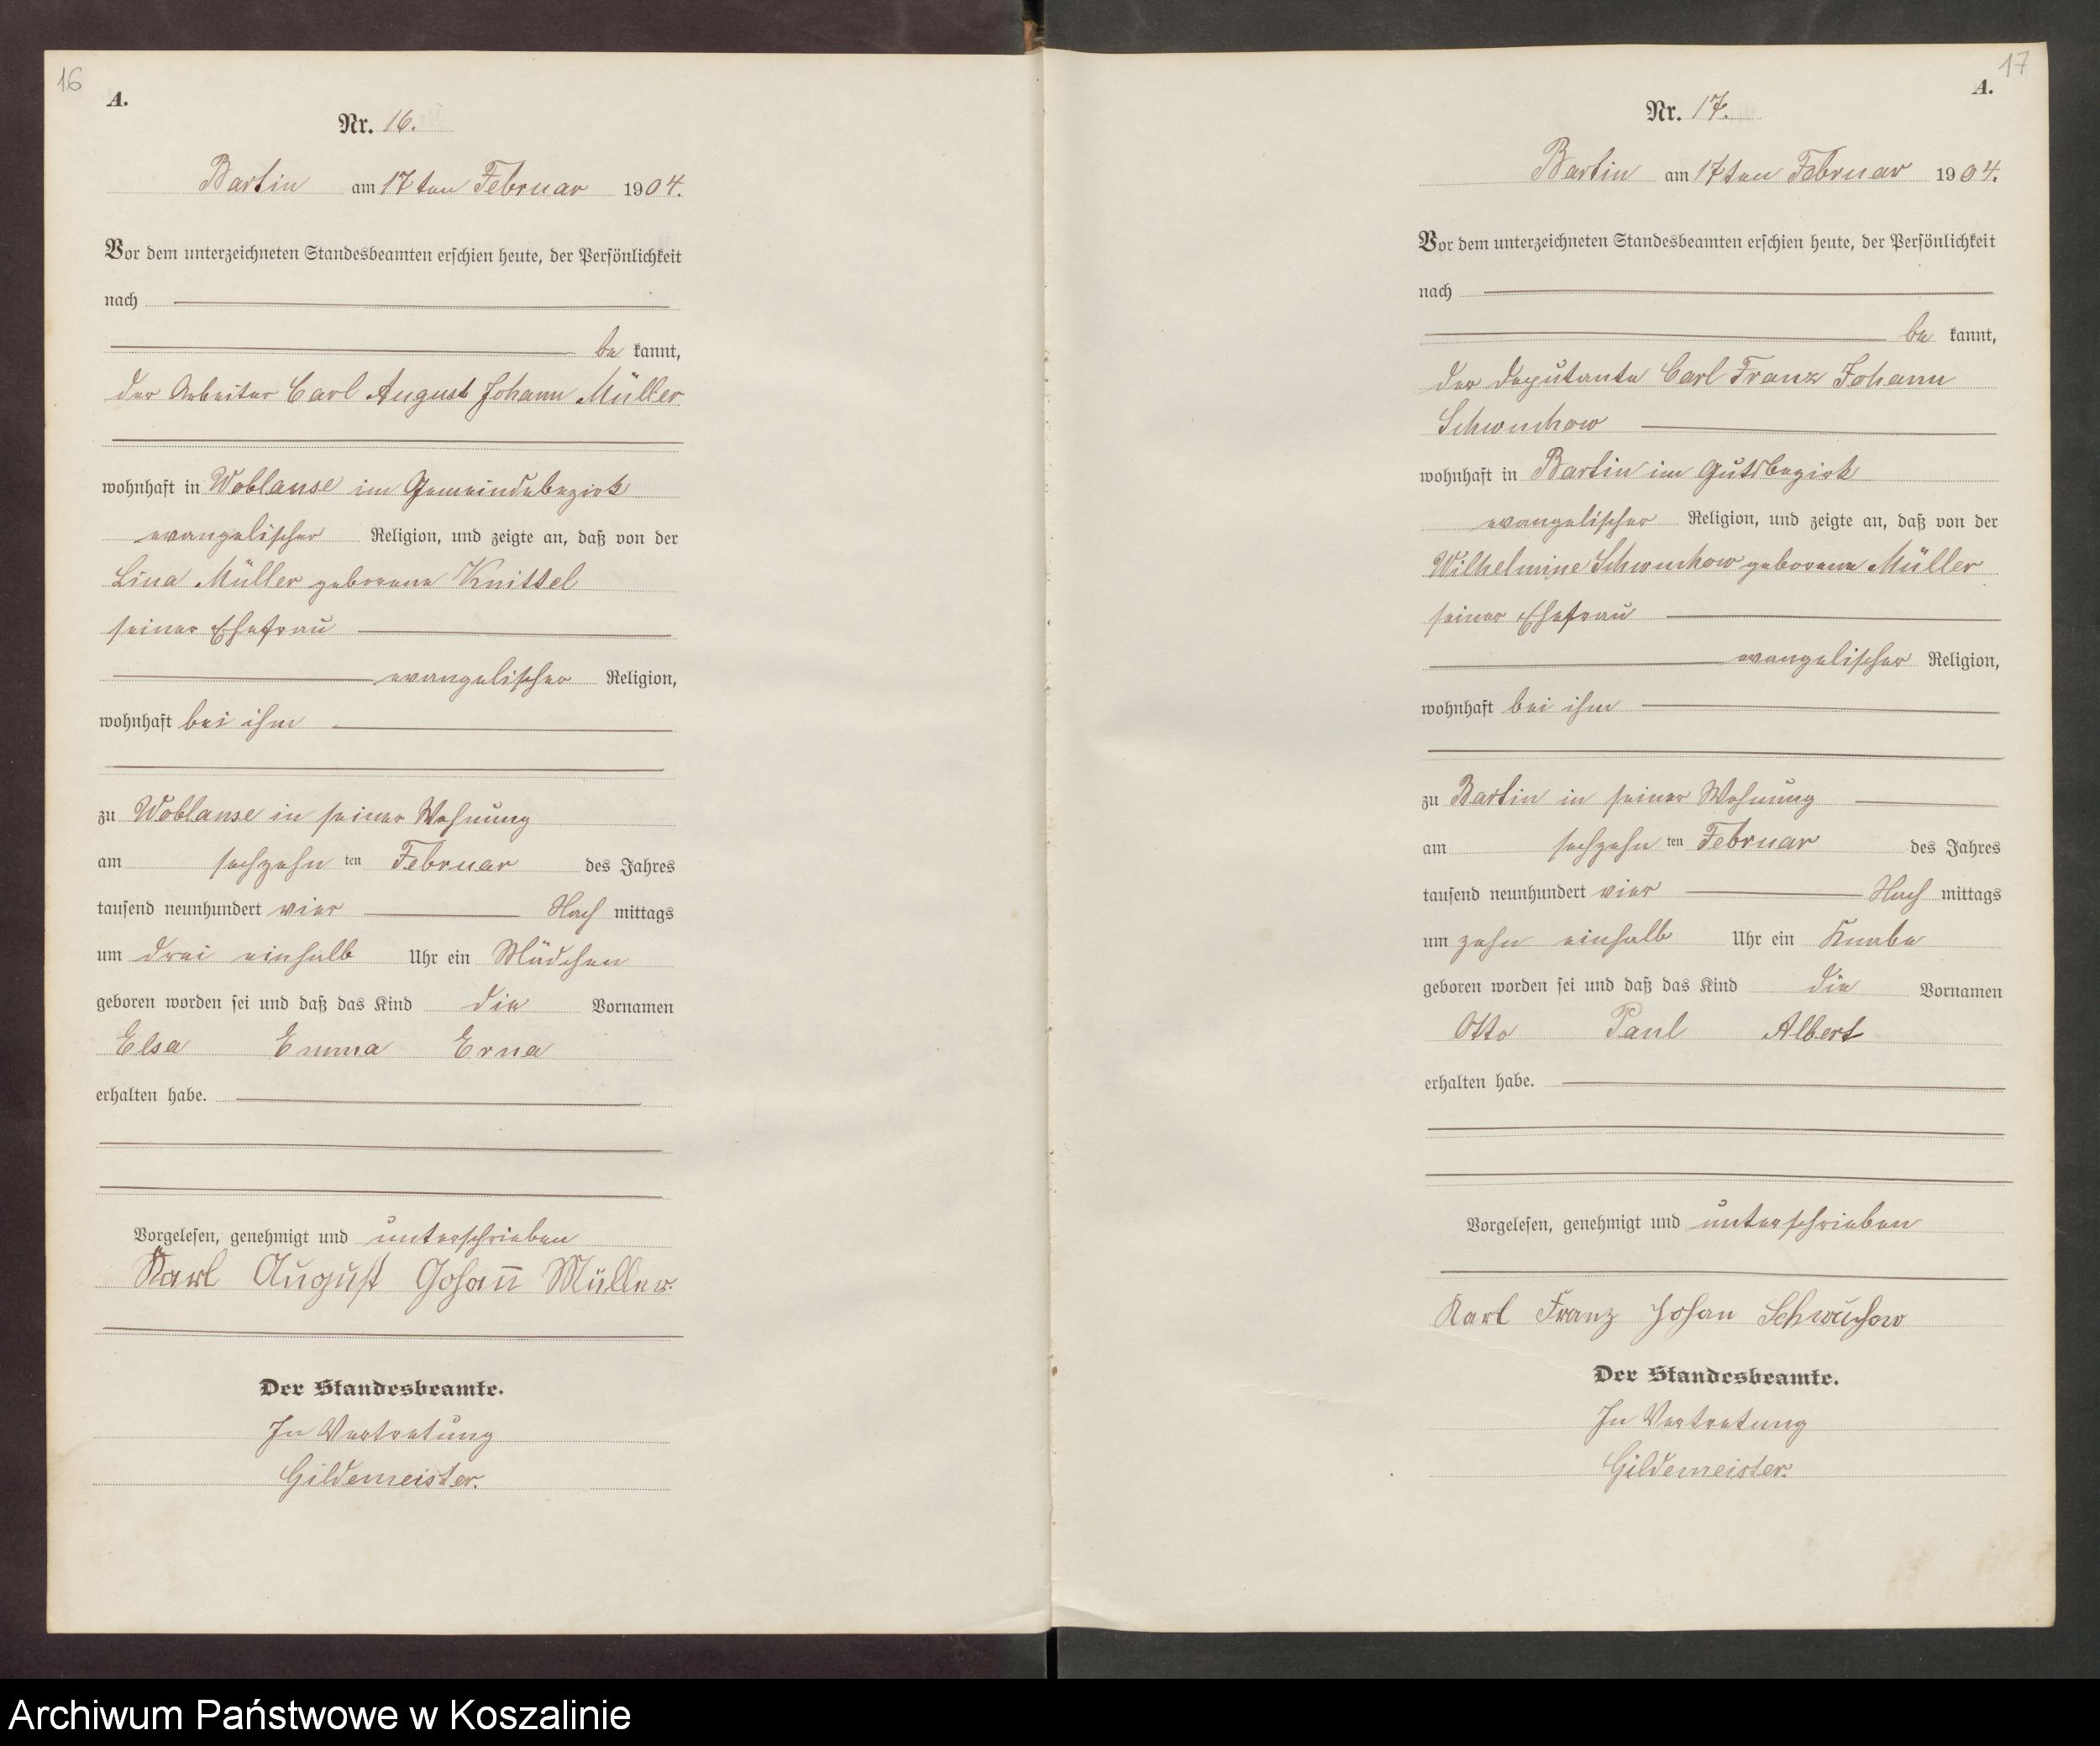 16
A.
Nr. 16.
Bartin am 17ten Februar 1904.
Vor dem unterzeichneten Standesbeamten erschien heute, der Persönlichkeit
nach
be kannt,
der Arbeiter Carl August Johann Müller
wohnhaft in Woblanse im Gemeindebezirk
evangelischer Religion, und zeigte an, daß von der
Lina Müller geborene Knittel
seiner Ehefrau
evangelischer Religion,
wohnhaft bei ihm
zu Woblanse in seiner Wohnung
am sechzehn ten Februar des Jahres
tausend neunhundert vier Nach mittags
um drei einhalb Uhr ein Mädchen
geboren worden sei und daß das Kind die Vornamen
Elsa Emma Erna
erhalten habe.
Vorgelesen, genehmigt und unterschrieben
Karl August Johann Müller.
Der Standesbeamte.
In Vertretung
Gildemeister.
17
A.
Nr. 17.
Bartin am 17ten Februar 1904.
Vor dem unterzeichneten Standesbeamten erschien heute, der Persönlichkeit
nach
be kannt,
der Deputante Carl Franz Johann
Schwuchow
wohnhaft in Bartin im Gutsbezirk
evangelischer Religion, und zeigte an, daß von der
Wilhelmine Schwuchow geborene Müller
seiner Ehefrau
evangelischer Religion,
wohnhaft bei ihm
zu Bartin in seiner Wohnung
am sechzehn ten Februar des Jahres
tausend neunhundert vier Nach mittags
um zehn einhalb Uhr ein Knabe
geboren worden sei und daß das Kind die Vornamen
Otto Paul Albert
erhalten habe.
Vorgelesen, genehmigt und unterschrieben
Karl Franz Johan Schwuchow
Der Standesbeamte.
In Vertretung
Gildemeister.
Archiwum Państwowe w Koszalinie